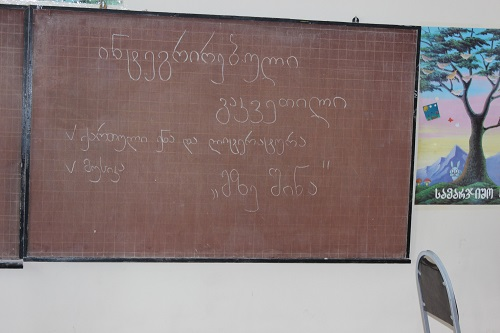 ინტეგრირებული
გაკვეთილი
√ ქართული ენა და ლიტერატურა
√ მუსიკა
„მზე შინა"
სამარჯიშო